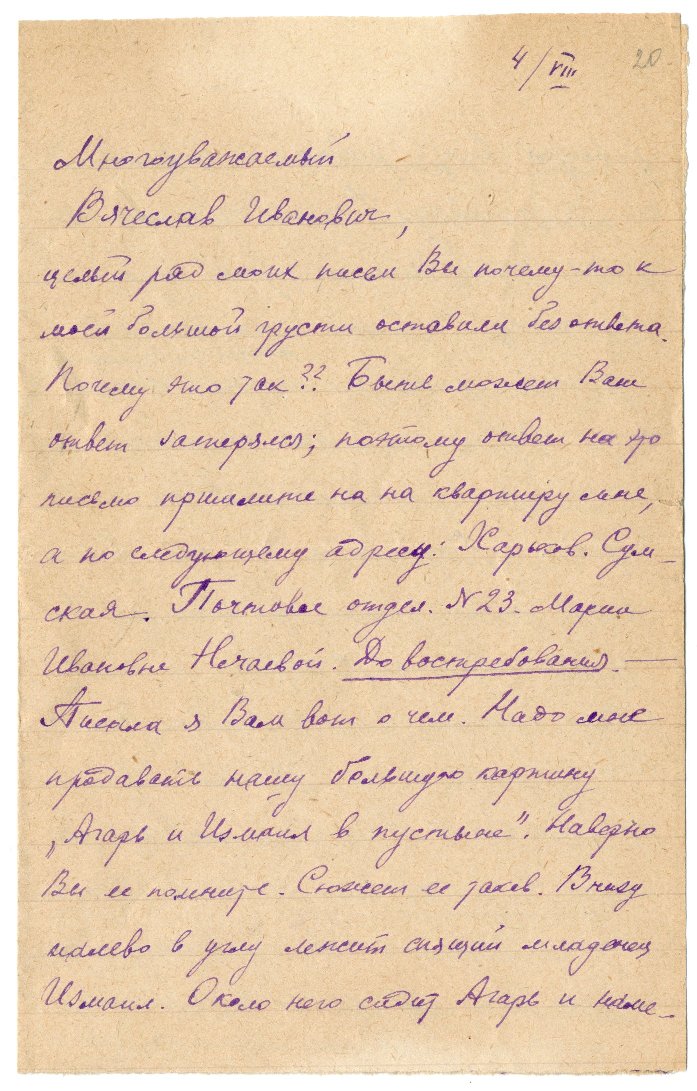 4/VIII 20
Многоуважаемый
Вячеслав Иванович,
целый ряд моих писем Вы почему-то к
моей большой грусти оставили без ответа.
Почему это так?? Быть может Ваш
ответ затерялся; поэтому ответ на это
письмо пришлите на на квартиру мне,
а по следующему адресу: Харьков. Сум-
ская. Почтовое отдел. N 23. Марии
Ивановне Нечаевой. До востребования. —
Писала я Вам вот о чем. Надо мне
продавать нашу большую картину
„Агарь и Измаил в пустыне". Наверно
Вы ее помните. Сюжет ее таков. Внизу
налево в углу лежит спящий младенец
Измаил. Около него сидит Агарь и